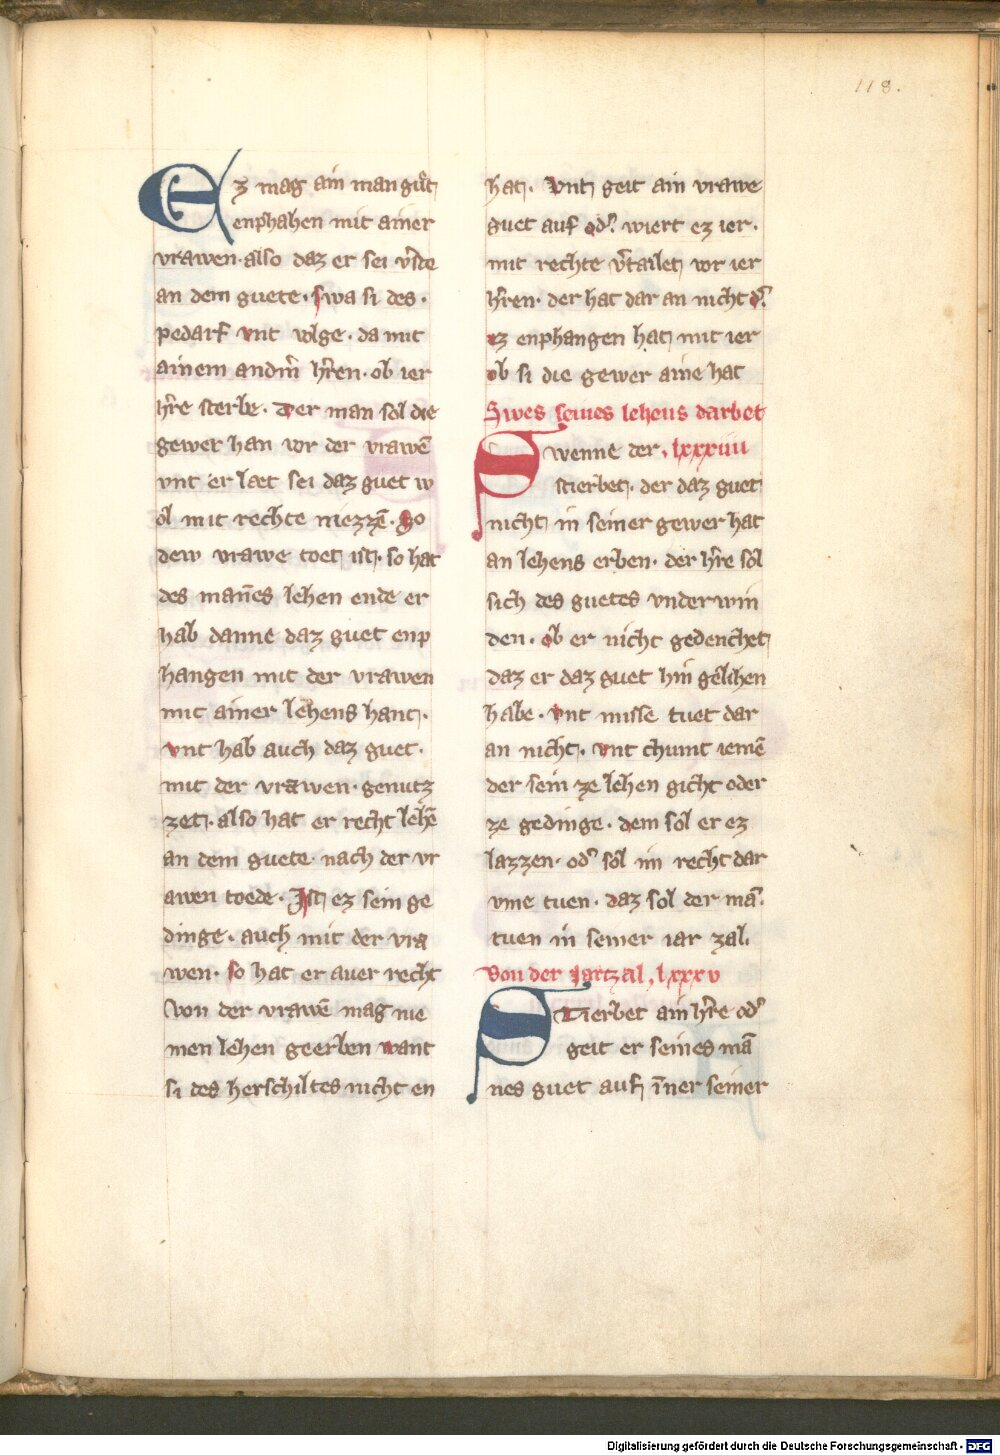 118.
Ez mag ain man gůt
enphahen mit ainer
vrawen. also daz er sei v̾ste
an dem guete. swa si des.
pedarf vnt volge. da mit
ainem andm̾ h̾ren. ob ier
h̾re sterbe. Der man sol die
gewer han vor der vrawē
vnt er læt sei daz guet w
ol mit rechte niezzē. So
dew vrawe toet ist. so hat
des man̄es lehen ende er
hab danne daz guet enp
hangen mit der vrawen
mit ainer lehens hant.
vnt hab auch daz guet.
mit der vrawen. genutz
zet. also hat er recht lehē
an dem guete. nach der vr
awen toede. Ist ez sein ge
dinge. auch mit der vra
wen. so hat er auer recht
Von der vrawē mag nie
men lehen geerben want
si des herschiltes nicht en
hat. Vnt geit ain vrawe
guet auf od̾ wiert ez ier.
mit rechte v̾tailet vor ier
h̾ren. der hat dar an nicht d̾
ez enphangen hat mit ier
ob si die gewer aine hat
Swes seines lehens darbet
Swenne der. lxxxiiii
stierbet. der daz guet
nicht in seiner gewer hat
an lehens erben. der h̾re sol
sich des guetes vnderwin
den. ob er nicht gedenchet
daz er daz guet hin gelihen
habe. vnt misse tuet dar
an nicht. vnt chumt iemē
der sein ze lehen gicht oder
ze gedinge. dem sol er ez
lazzen. od̾ sol im recht dar
vme tuen. daz sol der mā.
tuen in seiner iar zal.
Von der Jartzal, lxxxv
STierbet ain h̾re od̾
geit er seines mā
nes guet auf īner seiner
Digitalisierung gefördert durch die Deutsche Forschungsgemeinschaft - DFG